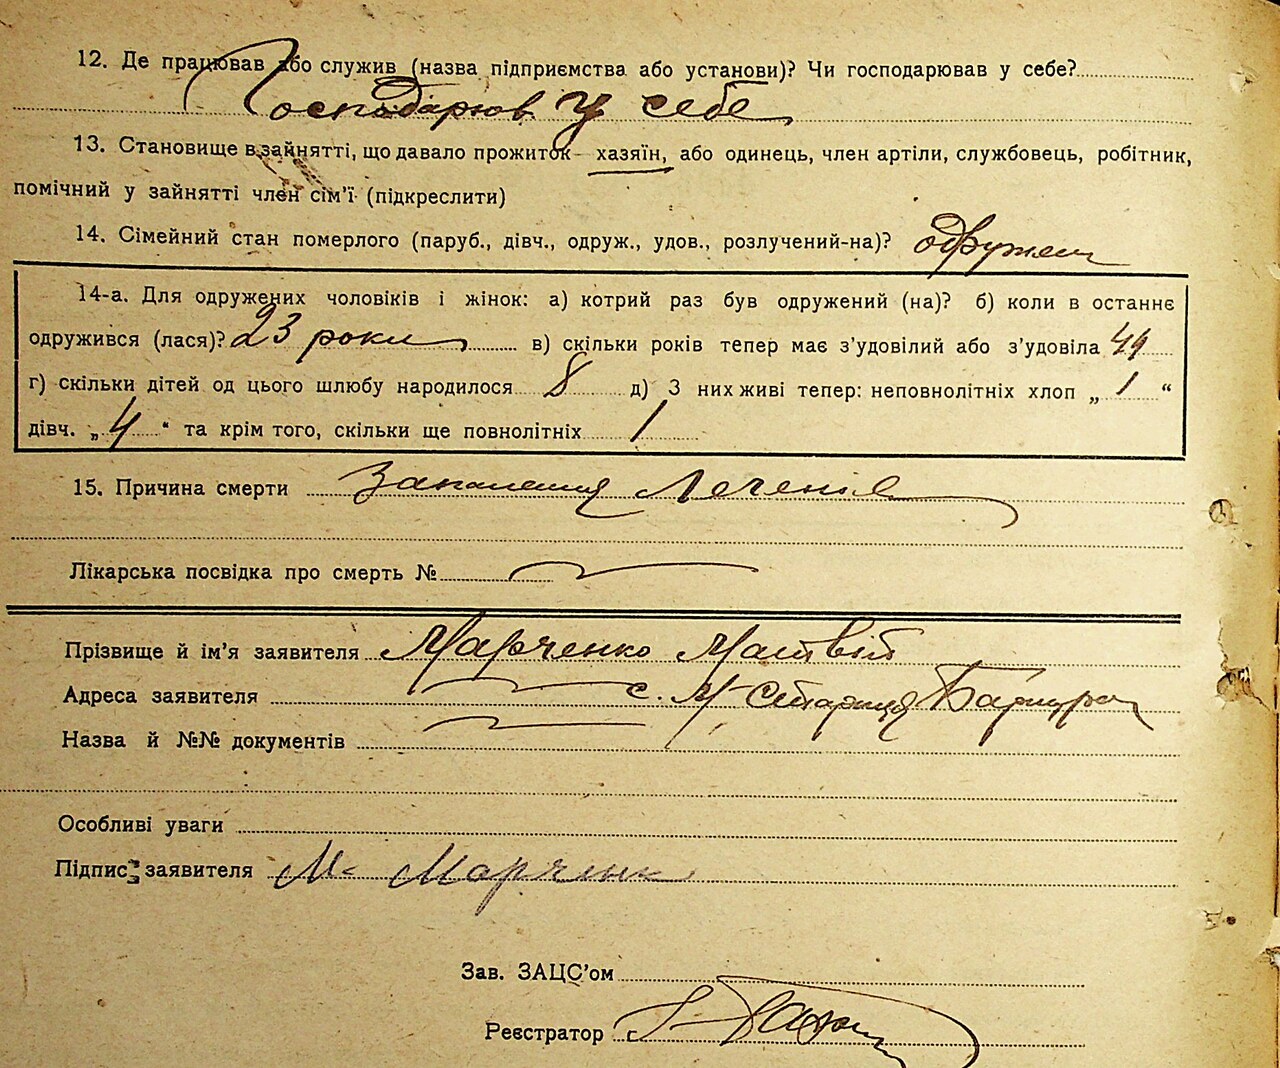 12. Де працював або служив (назва підприємства або установи)? Чи господарював у себе?
Господарюв у себе
13. Становище в зайнятті, що давало прожиток — хазяїн, або одинець, член артілі, службовець, робітник,
помічний у зайнятті член сім'ї (підкреслити)
14. Сімейний стан померлого (паруб., дівч., одруж., удов., розлучений-на)? одружен
14-а. Для одружених чоловіків і жінок: а) котрий раз був одружений (на)? б) коли в останнє
одружився (лася)? 23 роки в) скільки років тепер має з'удовілий або з'удовіла 44
г) скільки дітей од цього шлюбу народилося 8 д) З них живі тепер: неповнолітніх хлоп „ 1 “
дівч. „ 4 “ та крім того, скільки ще повнолітніх 1
15. Причина смерти Запалення Легенів
Лікарська посвідка про смерть №
Прізвище й ім'я заявителя Марченко Матвій
Адреса заявителя с. М-Старица
Назва й №№ документів
Особливі уваги
Підпис заявителя М. Марченк
Зав. ЗАЦС'ом
Реєстратор